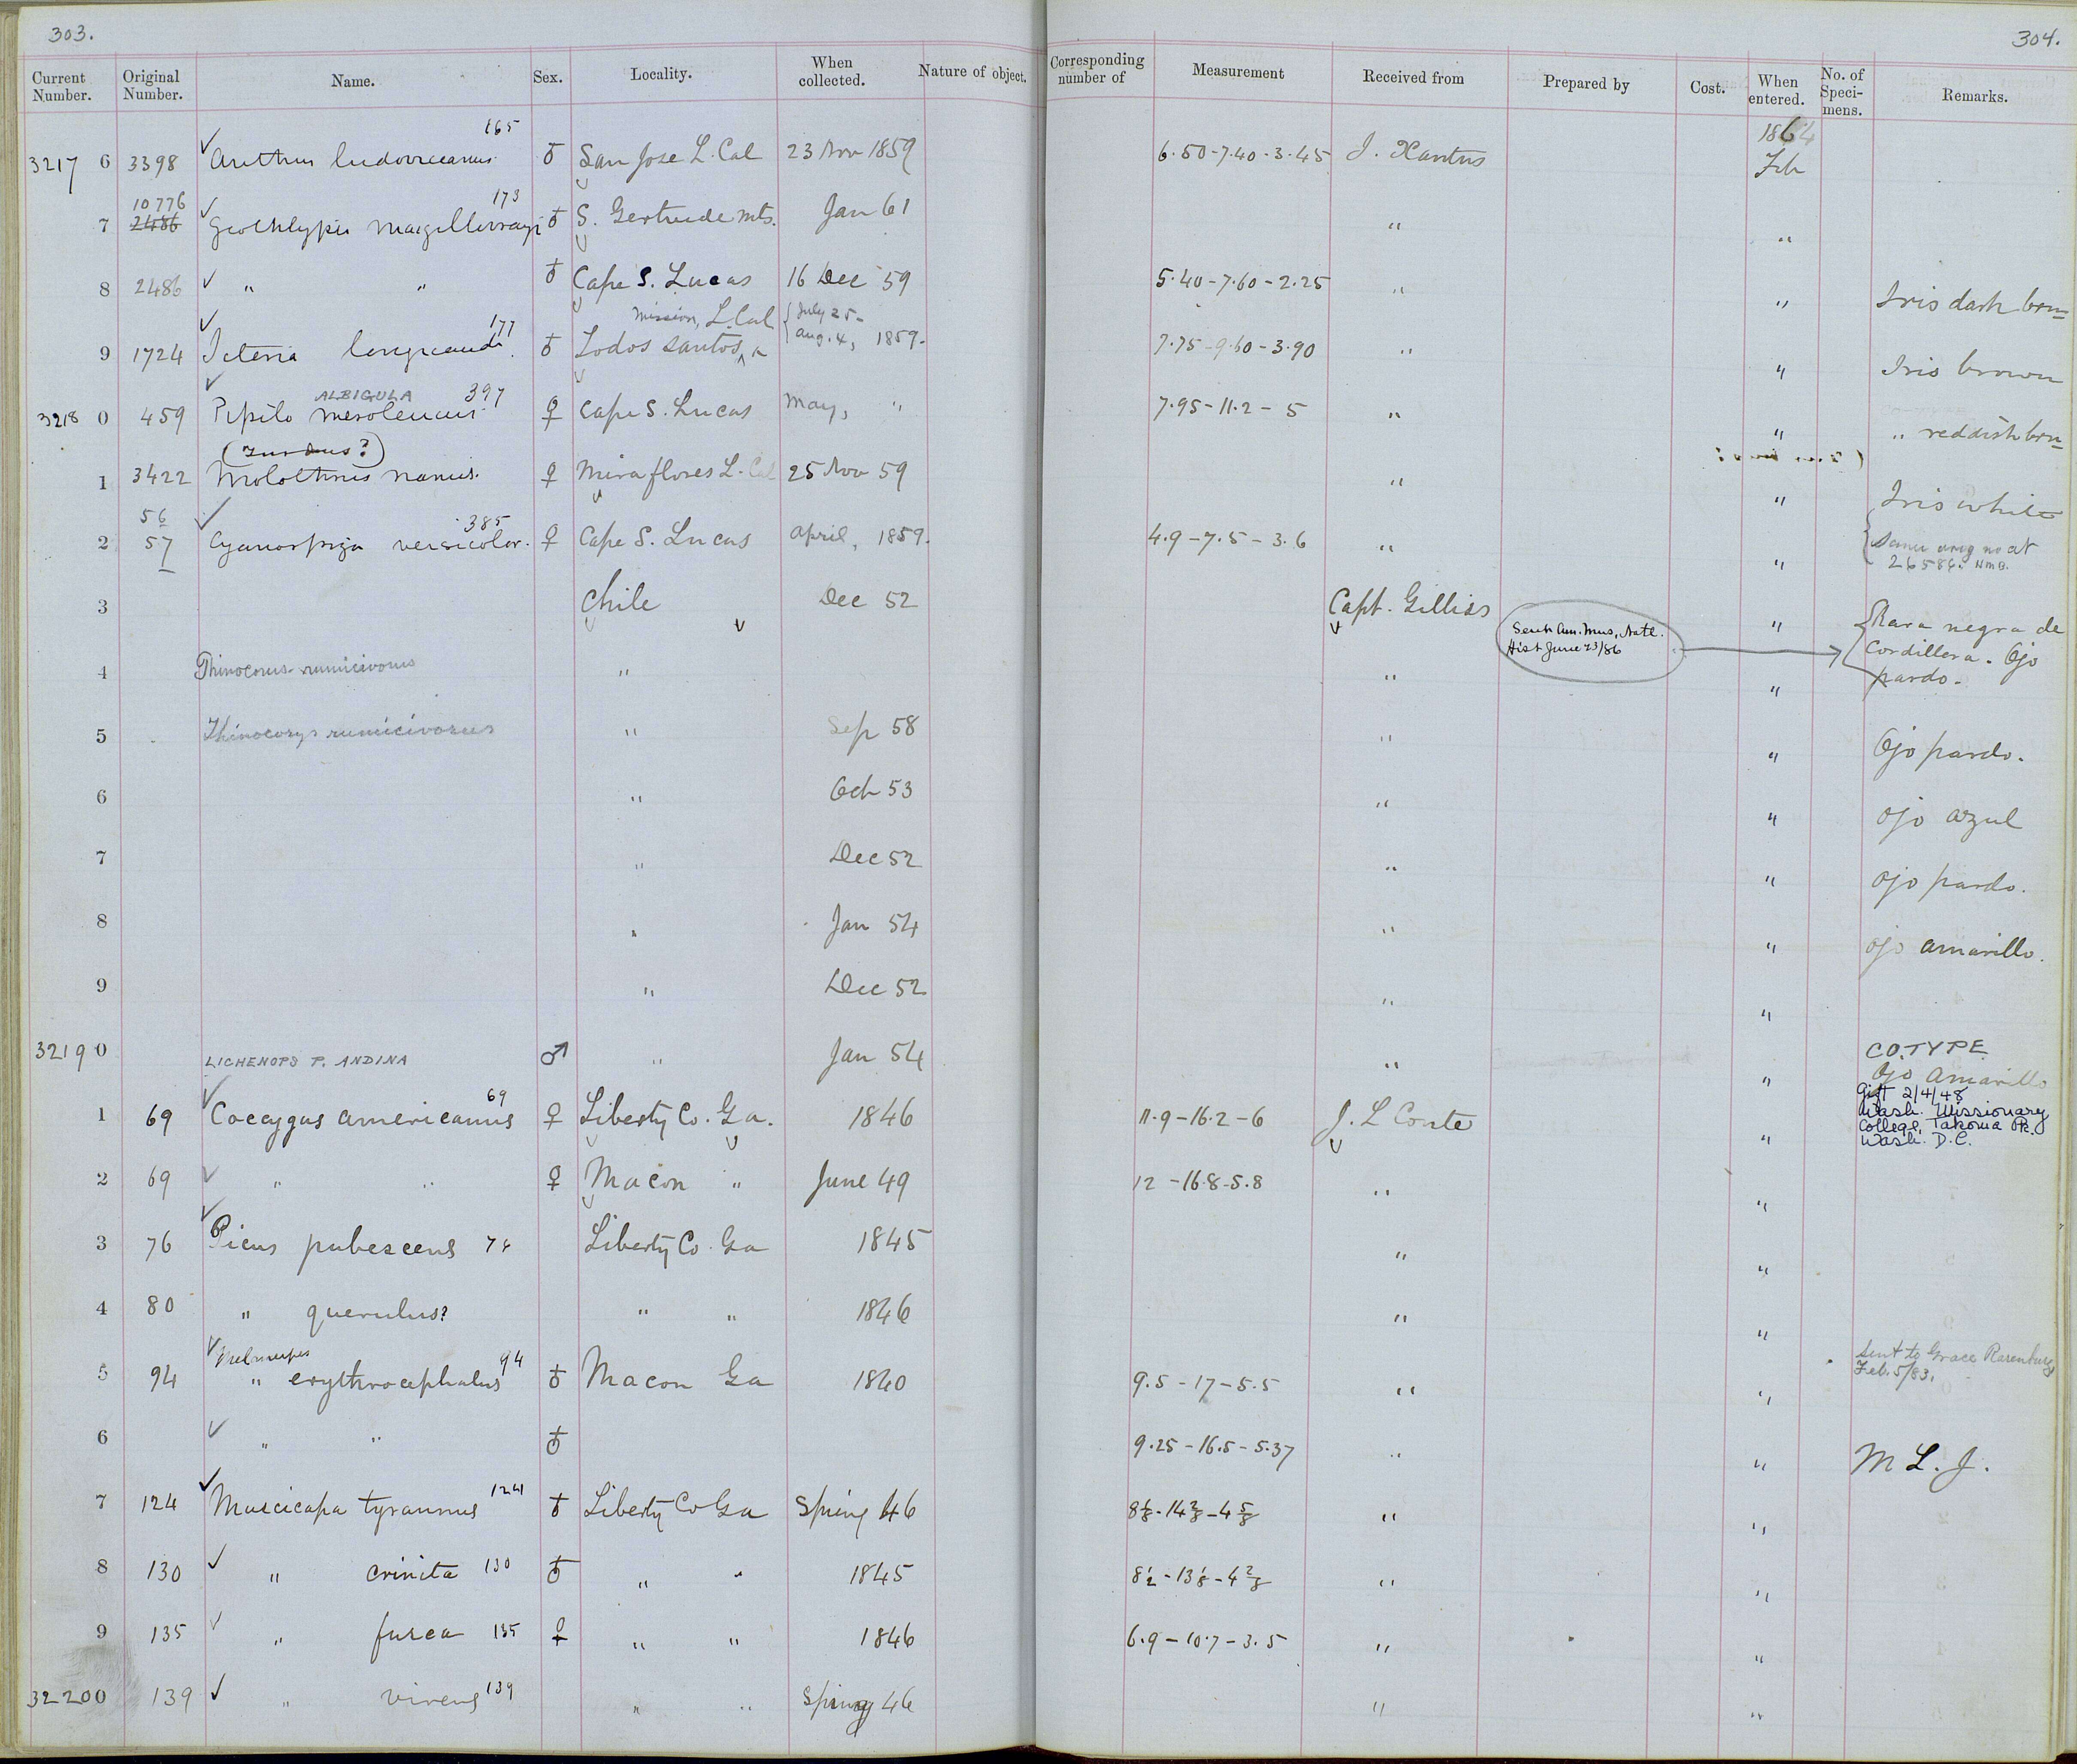 303.
304.
Current Number. Original Number. Name. Sex. Locality. When collected. Nature of object. Corresponding number of Measurement Received from Prepared by Cost. When entered. No. of Speci-mens. Remarks.
165 1864
3217 6 3398 ✓ Anthus ludovicianus. ♂ San Jose L. Cal 23 Nov 1859 6.50-7.40-3.45 J. Xantus Feb
10776 173
7 2486 ✓ Geothlypis macgillivrayi ♂ S. Gertrude mts. Jan 61 " "
8 2486 ✓ " " ♂ Cape S. Lucas 16 Dec 59 5.40-7.60-2.25 " " Iris dark brn
177 mission, L. Cal { July 25-
9 1724 ✓ Icteria longicauda. ♂ Todos santos, Aug. 4, 1859. 7.75-9.60-3.90 " " Iris brown
ALBIGULA 397
3218 0 459 ✓ Pipilo mesoleucus. ♀ Cape S. Lucas May, " 7.95-11.2-5 " " " reddish brn
1 3422 Molothrus ♀ Miraflores L. Cal 25 Nov 59 " " Iris white
56 385
2 57 ✓ Cyanospiza versicolor. ♀ Cape S. Lucas April, 1859. 4.9-7.5-3.6 " " { Same orig no at
26586.
3 Chile Dec 52 Capt. Gilliss " { Rara negra de
Cordillera. Ojo
pardo.
Sent Am. Mus. Natl.
Hist June 23/86
4 Thinocorus rumicivorus " " "
5 Thinocorys rumicivorus " Sep 58 " " Ojo pardo.
6 " Oct 53 " " ojo azul
7 " Dec 52 " " ojo pardo.
8 " Jan 54 " " ojo amarillo.
9 " Dec 52 " "
3219 0 LICHENOPS P. ANDINA ♂ " Jan 54 " " CO.TYPE
Ojo amarillo
69 Gift 2/4/48
1 69 ✓ Coccygus americanus ♀ Liberty Co. Ga. 1846 11.9-16.2-6 J. L Conte " Wash. Missionary
College, Takoma Pk.
Wash. D.C.
2 69 ✓ " " ♀ Macon " June 49 12-16.8-5.8 " "
3 76 ✓ Picus pubescens 76 Liberty Co. Ga 1845 " "
4 80 " querulus? " " 1846 " "
Melanerpes 94 Sent to Grace
5 94 ✓ " erythrocephalus ♂ Macon Ga 1840 9.5-17-5.5 " " Feb. 5/83.
6 ✓ " " ♂ 9.25-16.5-5.37 " " M L. J.
7 124 ✓ Muscicapa tyrannus 124 ♂ Liberty Co Ga Spring 46 " "
8 130 ✓ " crinita 130 ♂ " " 1845 8½-13⅛-4 2/8 " "
9 135 ✓ " fusca 135 ♀ " " 1846 6.9-10.7-3.5 " "
32200 139 ✓ " virens 139 " " Spring 46 " "